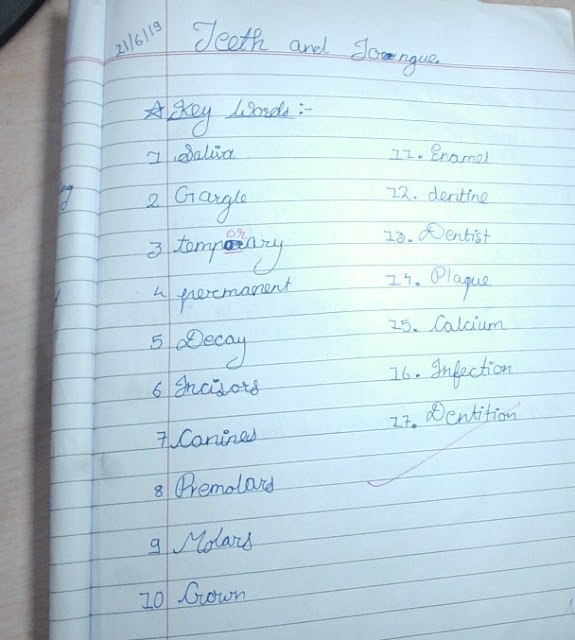 21/6/19
Teeth and Toongue
☆ Key Words :-
1 Saliva
2 Gargle
3 temporary
or
4 permanent
5 Decay
6 Incisors
7 Canines
8 Premolars
9 Molars
10 Crown
11. Enamel
12. dentine
13. Dentist
14. Plaque
15. Calcium
16. Infection
17. Dentition